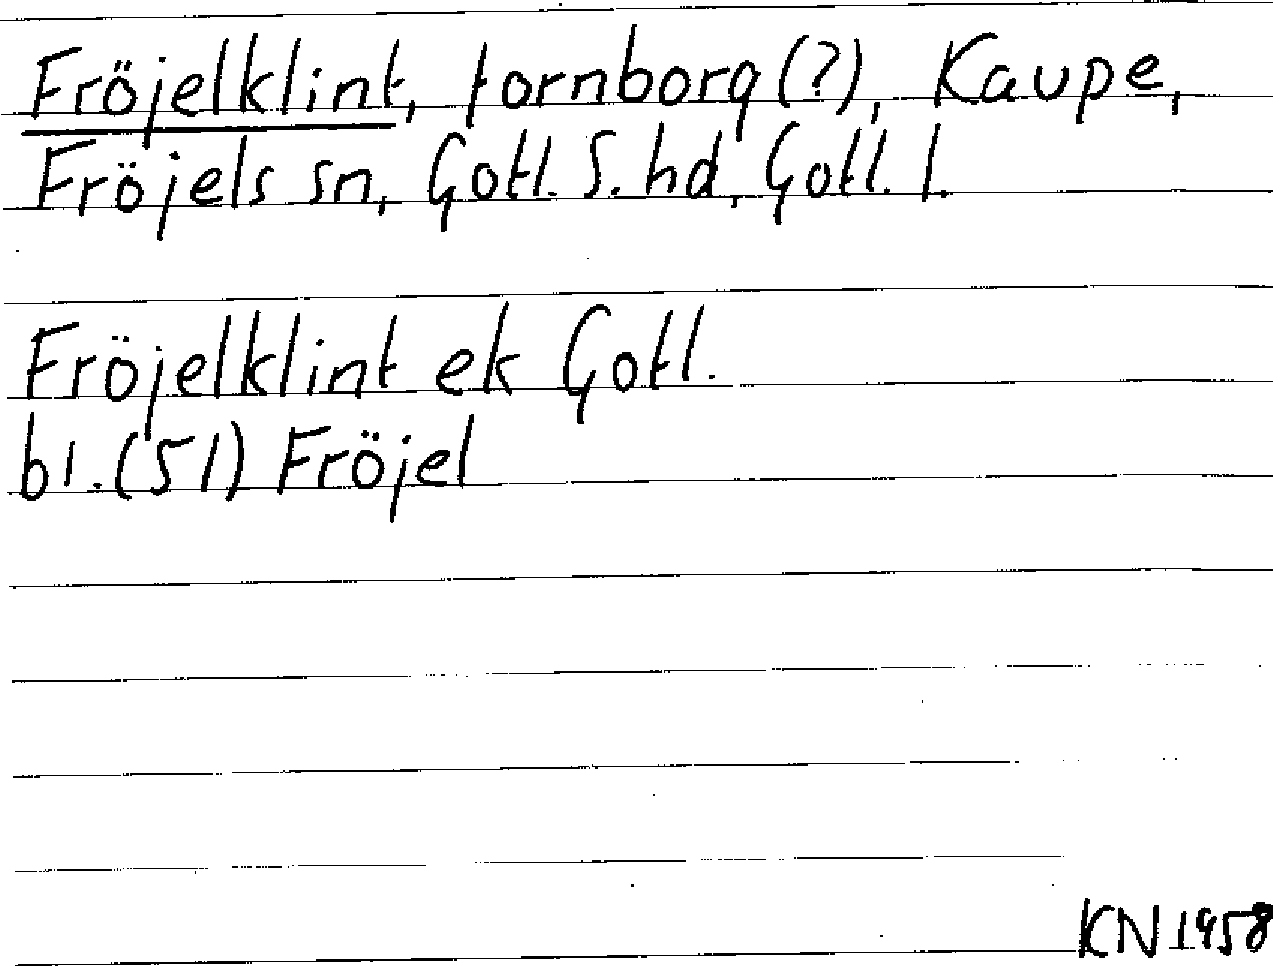 Fröjelklint, fornborg (?), Kaupe,
Fröjels sn, Gotl. S. hd, Gotl. l.
Fröjelklint ek Gotl.
bl. (51) Fröjel
KN 1958